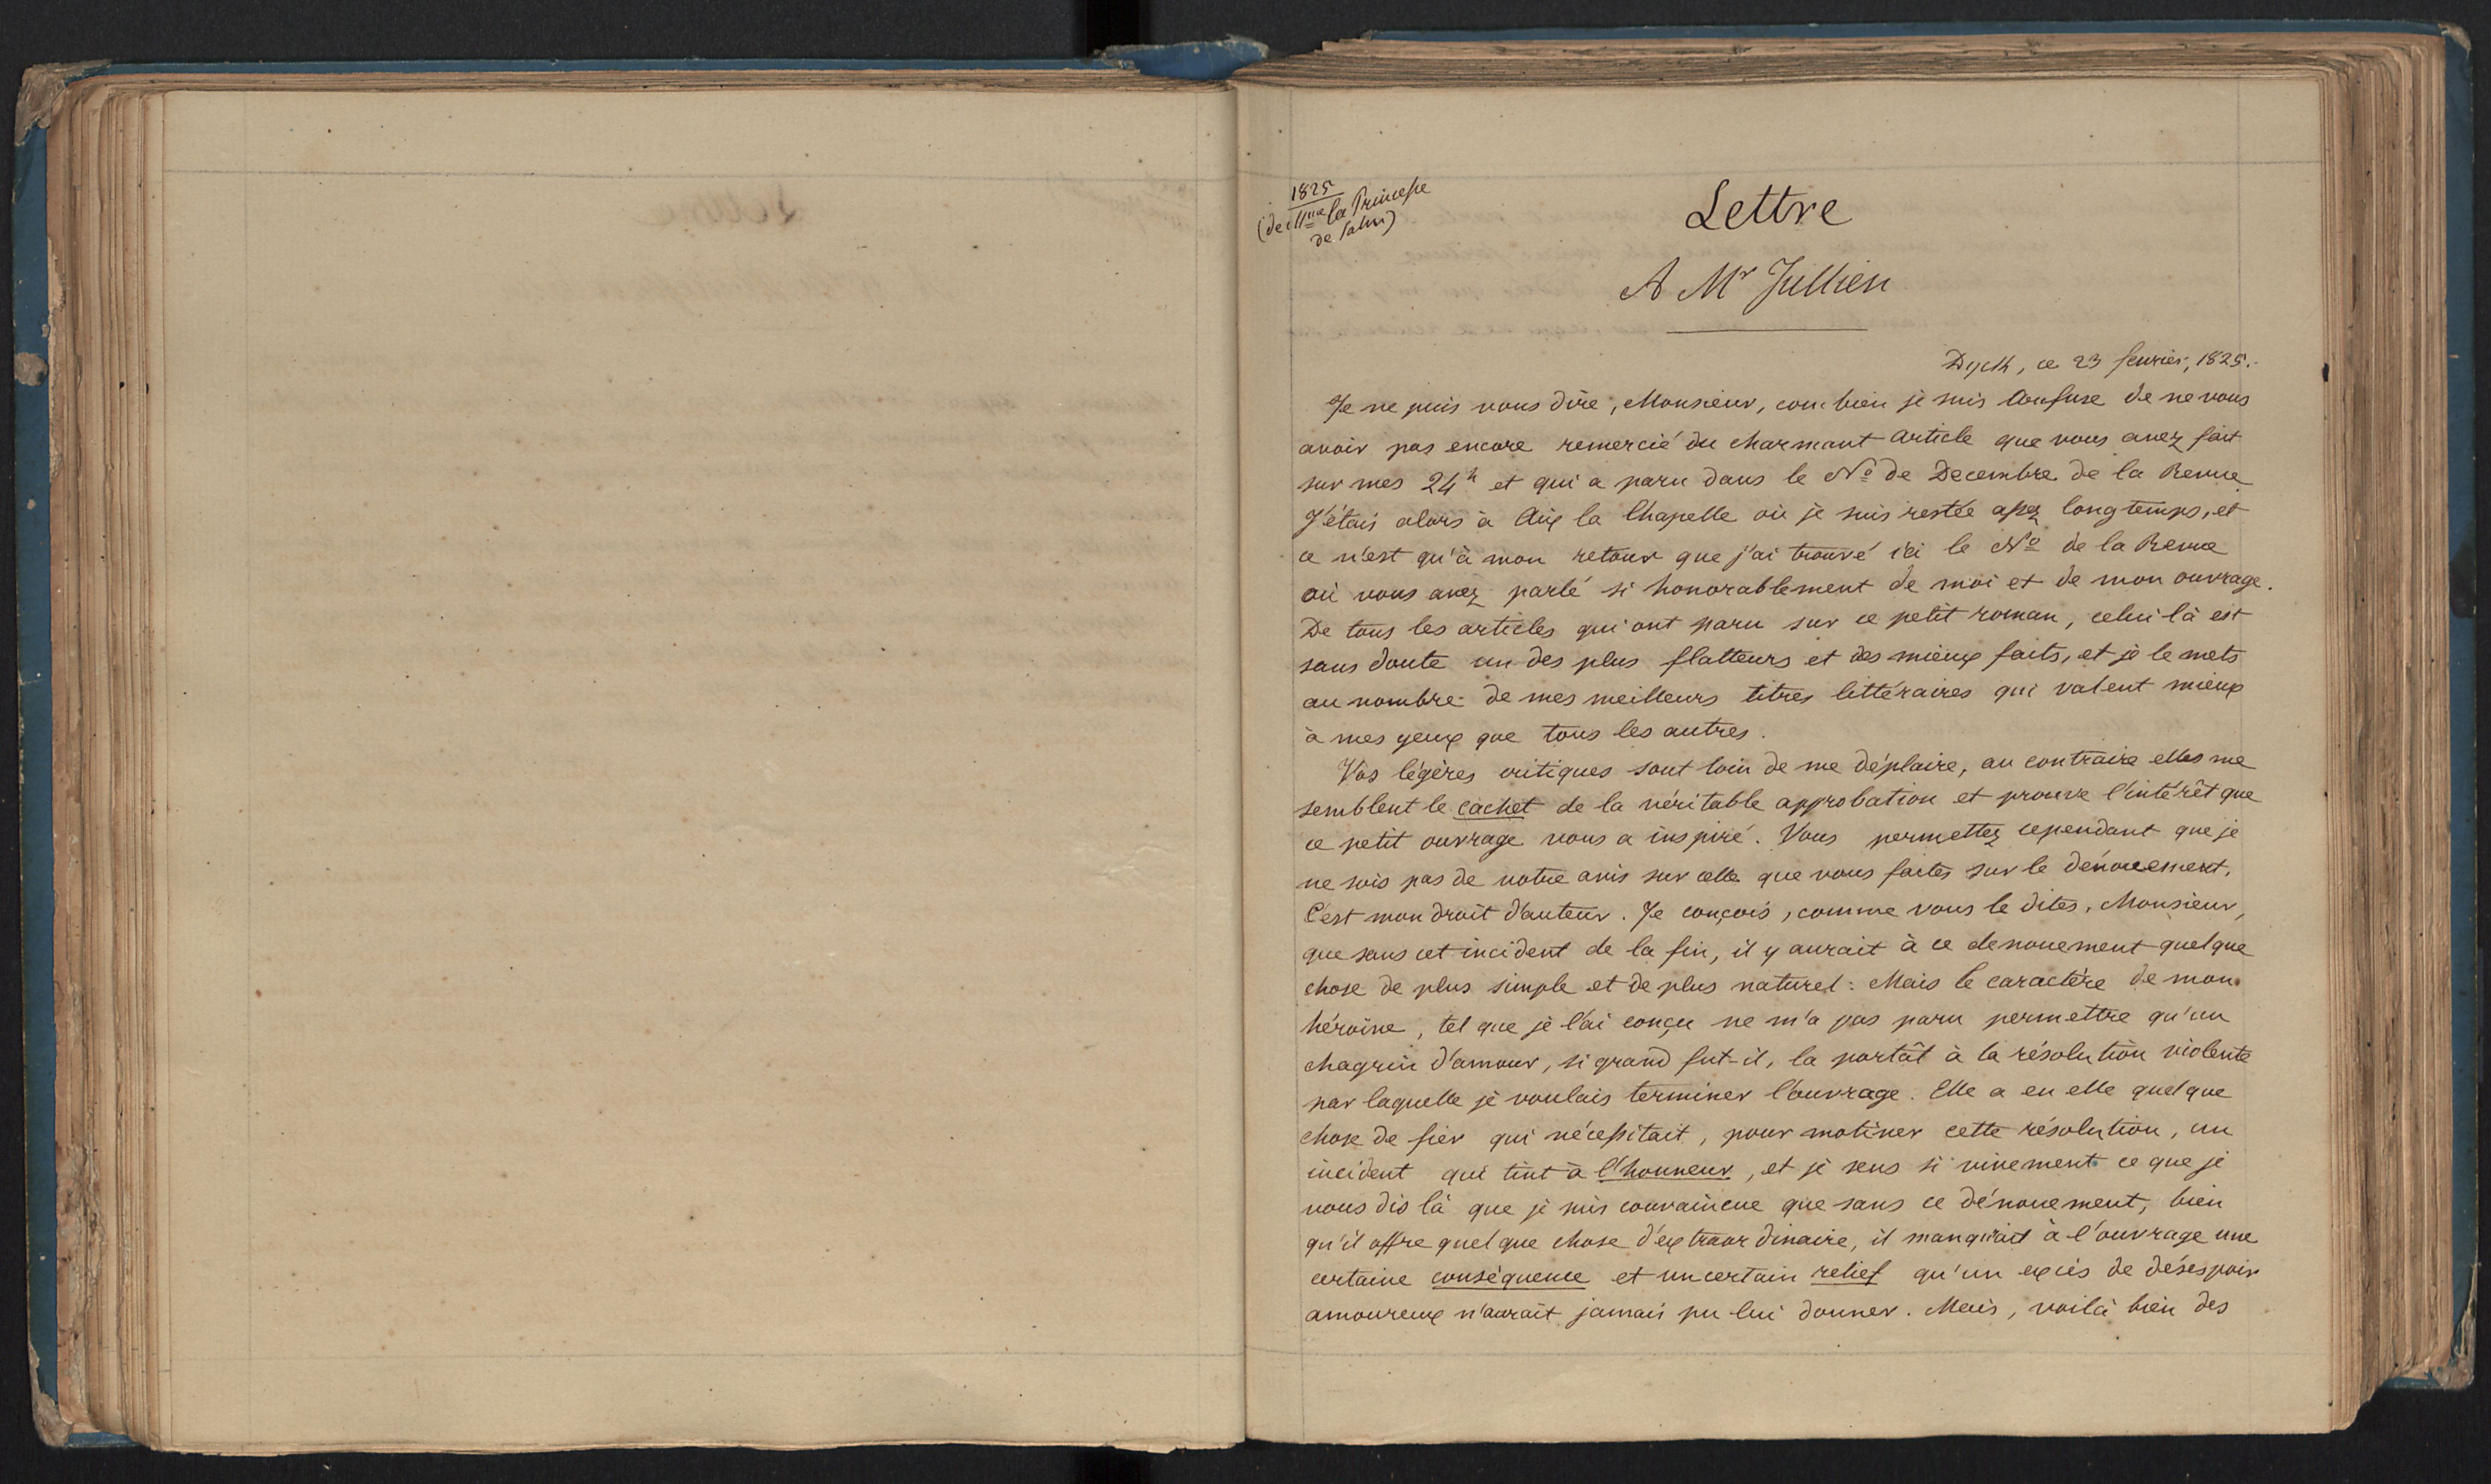 1825
(de Mme la Princesse
de Salm)
Lettre
A Mr Jullien
Dyck, ce 23 fevrier, 1825.
Je ne puis vous dire, Monsieur, combien je suis Confuse de ne vous
avoir pas encore remercié du charmant article que vous avez fait
sur mes 24h et qui a paru dans le No de Decembre de la Revue
J'étais alors à Aix la Chapelle où je suis restée assez longtemps, et
ce n'est qu'à mon retour que j'ai trouvé ici le No de la Revue
où vous avez parlé si honorablement de moi et de mon ouvrage.
De tous les articles qui ont paru sur ce petit roman, celui là est
sans doute un des plus flatteurs et des mieux faits, et je le mets
au nombre de mes meilleurs titres littéraires qui valent mieux
à mes yeux que tous les autres.
Vos légères critiques sont loin de me déplaire, au contraire elles me
semblent le cachet de la véritable approbation et prouve l'intérêt que
ce petit ouvrage vous a inspiré. Vous permettez cependant que je
ne sois pas de votre avis sur celle que vous faites sur le dénouement,
C'est mon droit d'auteur. Je conçois, comme vous le dites, Monsieur,
que sans cet incident de la fin, il y aurait à ce denouement quelque
chose de plus simple et de plus naturel : Mais le caractère de mon
héroïne, tel que je l'ai conçu ne m'a pas paru permettre qu'un
chagrin d'amour, si grand fut-il, la portât à la résolution violente
par laquelle je voulais terminer l'ouvrage. Elle a en elle quelque
chose de fier qui nécessitait, pour motiver cette résolution, un
incident qui tint à l'honneur, et je sens si vivement ce que je
vous dis là que je suis convaincue que sans ce dénouement, bien
qu'il offre quelque chose d'extraordinaire, il manquait à l'ouvrage une
certaine conséquence et un certain relief qu'un excès de désespoir
amoureux n'aurait jamais pu lui donner. Mais, voilà bien des